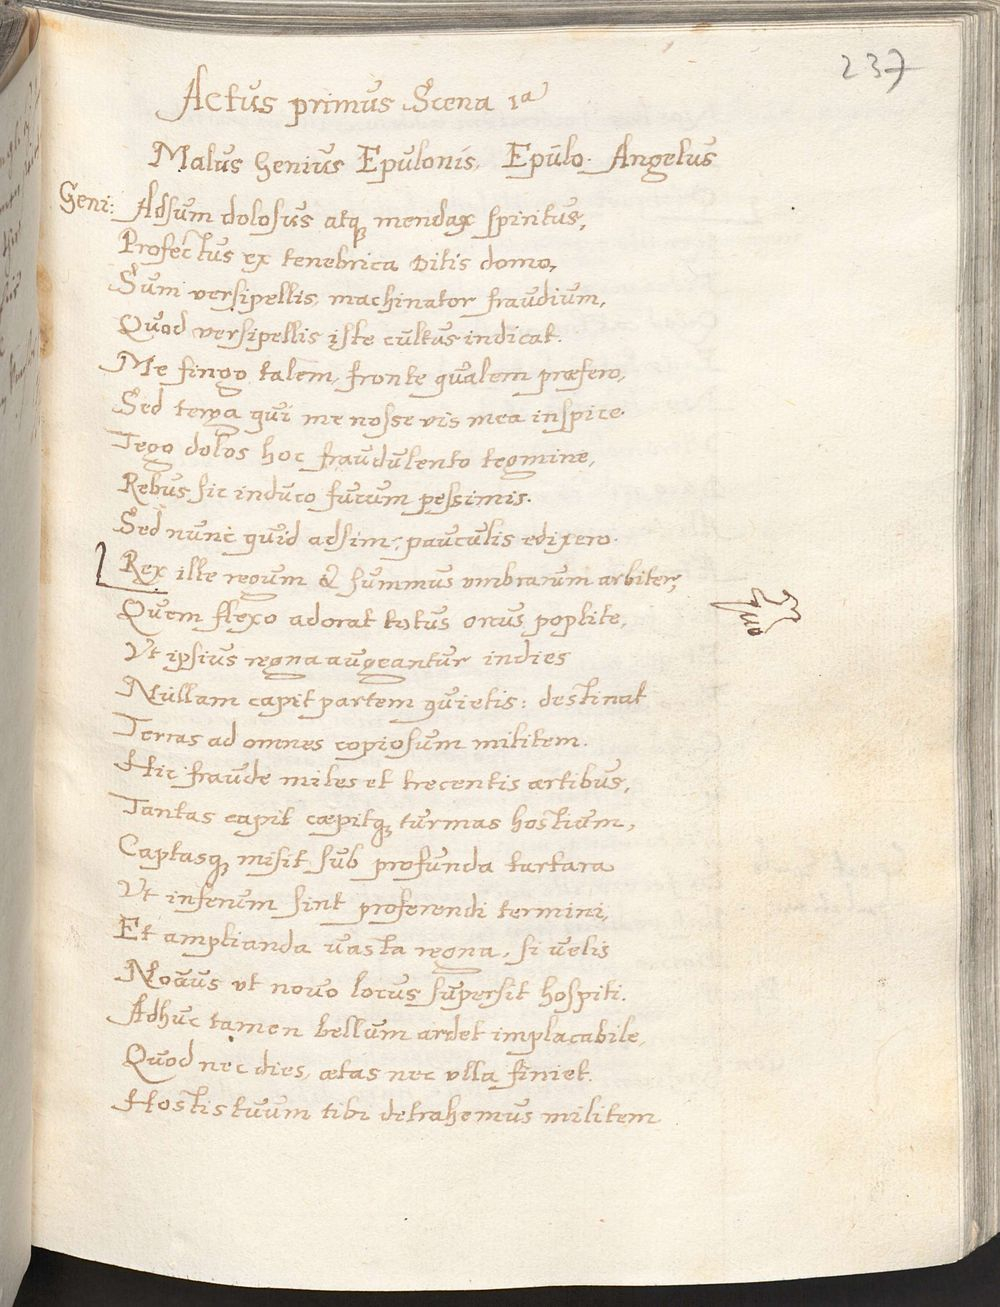 237
Actus primus Scena 1a
Malus Genius Epulonis, Epulo. Angelus
Geni: Adsum dolosus atq3 mendax spiritus,
Profectus ex tenebrica Ditis domo,
Sum versipellis, machinator fraudium,
Quod versipellis iste cultus indicat.
Me fingo talem, fronte qualem præfero,
Sed terga qui me nosse vis mea inspice.
Tego dolos hoc fraudulento tegmine,
Rebus sic induco fucum pessimis.
Sed nunc quid adsim, pauculis edixero.
Rex ille regum & summus umbrarum arbiter,
Quem flexo adorat totus orcus poplite,
Ut ipsius regna augeantur indies
Nullam capit partem quietis: destinat
Terras ad omnes copiosum militem.
Hic fraude miles et trecentis artibus,
Tantas capit cæpitq3 turmas hostium,
Captasq3 misit sub profunda tartara
Ut inferum sint proferendi termini,
Et amplianda vasta regna, si velis
Novus ut novo locus supersit hospiti.
Adhuc tamen bellum ardet implacabile,
Quod nec dies, ætas nec ulla finiet.
Hostis tuum tibi detrahemus militem